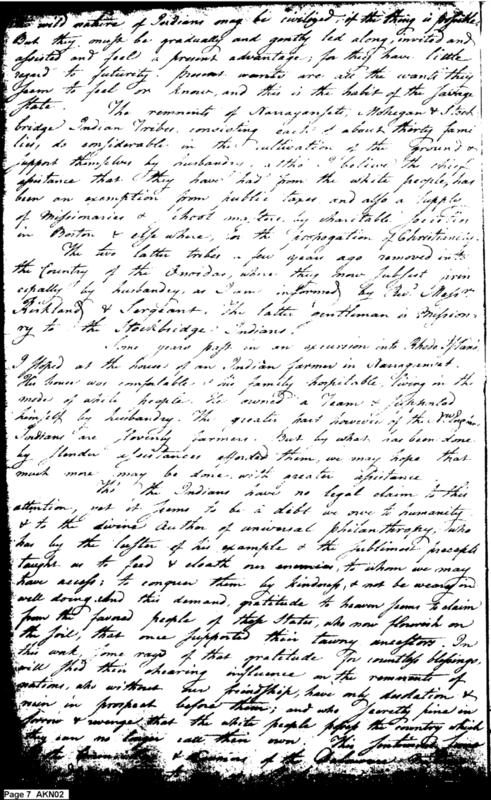 the wild nature of Indians may be civilized, if the thing is possible.
But they must be gradually and gently led along, invited and
assisted and feel a present advantage, for they have little
regard to futurity, present wants are all the wants they
seem to feel or know, and this is the habit of the savage
state.
The remnants of Narragansets, Mohegan & Stock
bridge Indian Tribes, consisting each of about thirty fami
lies, do considerable in the cultivation of the ground &
support themselves by husbandry, altho' I believe the chief
assistance that they have had from the white people, has
been an exemption from public taxes and also a supply
of Missionaries & school masters, by charitable societies
in Boston & elsewhere, for the propagation of Christianity.
The two latter tribes a few years ago removed into
the Country of the Oneidas, where they now subsist prin
cipally by husbandry, as I am informed by Revd. Messrs.
Kirkland & Sergeant. The latter gentleman is mission
ry to the Stockbridge Indians.
Some years past in an excursion into Rhode Island
I stoped at the house of an Indian farmer in Narraganset.
The house was comfortable & his family hospitable, living in the
mode of white people. He owned a Team & supported
himself by husbandry. The greater part however of the
Indians are slovenly farmers. But by what has been done
by slender assistances afforded them, we may hope that
much more may be done with greater assistance.
Tho' the Indians have no legal claim to this
attention, yet it seems to be a debt we owe to humanity
& to the divine Author of universal philanthropy, who
has by the lustre of his example & the sublimest precepts
taught us to feed & cloath our enemies, to whom we may
have access; to conquer them by kindness, & not be weary in
well doing. And this demand, gratitude to heaven seems to claim
from the favored people of these States, who now flourish on
the soil, that once supported their tawny ancestors. In
this work, some rays of that gratitude for countless blessings,
will shed their chearing influence on the remnants of
nations, who without our friendship, have only desolation &
ruin in prospect before them; and who secretly pine in
sorrow & revenge that the white people possess the country which
they can no longer call their own. This
of the Delaware
Page 7 AKN02